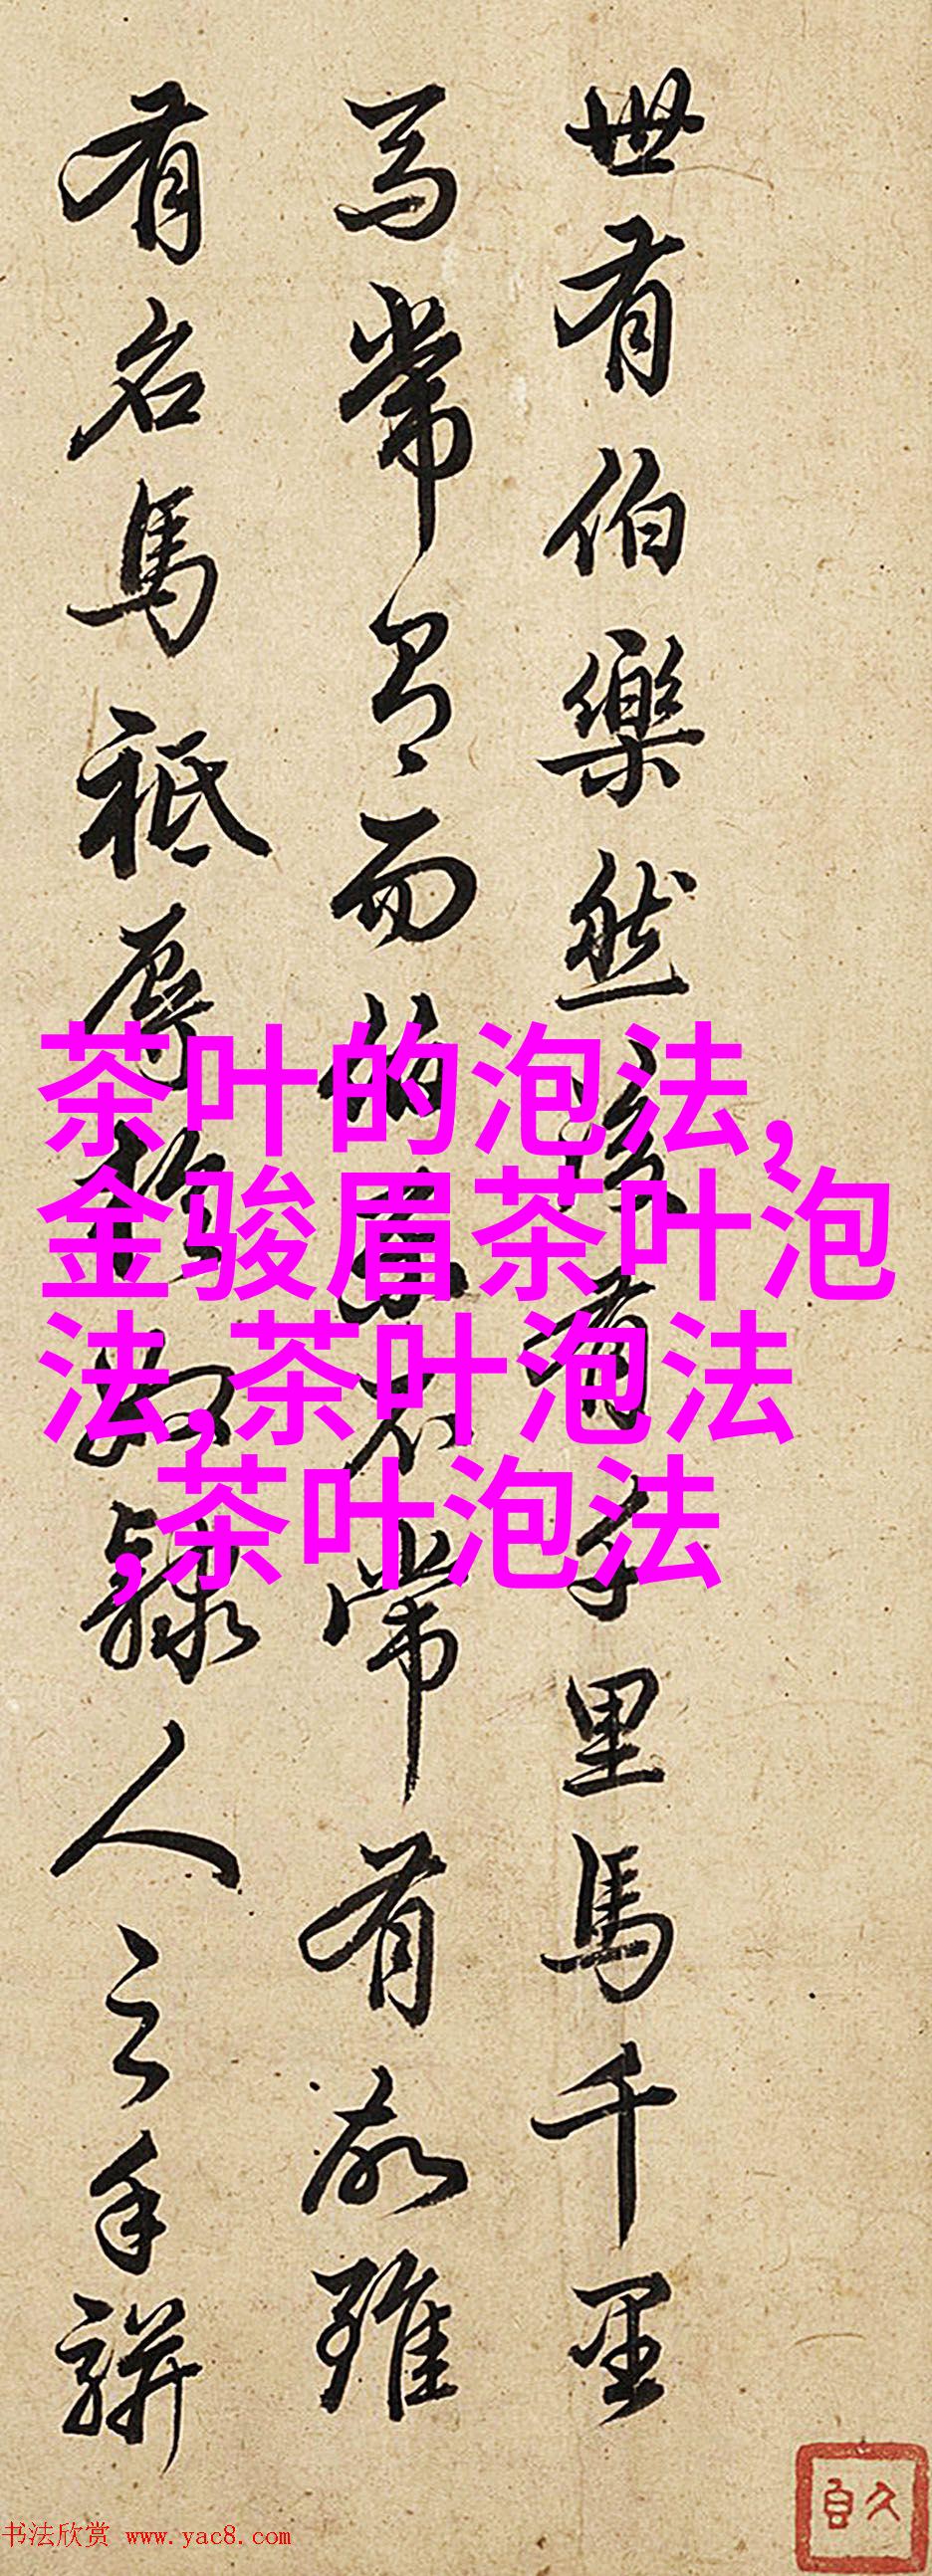 世有伯樂然後有千里馬千里
馬常有而伯樂不常有故雖
有名馬祗辱於奴隸人之手駢
茶叶的泡法,
金骏眉茶叶泡
法,茶叶泡法
,茶叶泡法
书法欣赏 www.yac8.com